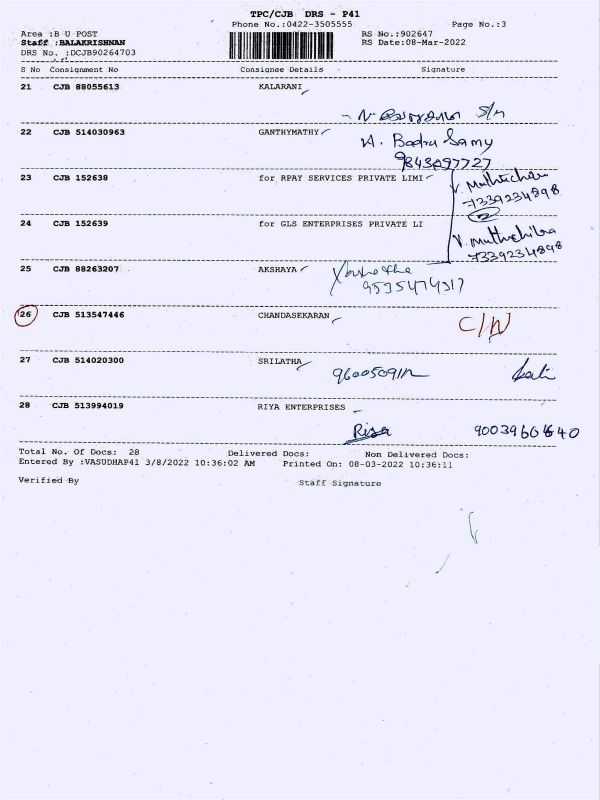 TPC/CJB DRS - P41
Phone No.:0422-3505555 Page No.:3
Area :B U POST RS No.:902647
Staff :BALAKRISHNAN RS Date:08-Mar-2022
DRS No. :DCJB90264703
S No Consignment No Consignee Details Signature
21 CJB 88055613 KALARANI
S/n
22 CJB 514030963 GANTHYMATHY
9843097727
23 CJB 152638 for RPAY SERVICES PRIVATE LIMI
7339234898
24 CJB 152639 for GLS ENTERPRISES PRIVATE LI
7339234898
25 CJB 88263207 AKSHAYA
26 CJB 513547446 CHANDASEKARAN
27 CJB 514020300 SRILATHA
28 CJB 513994019 RIYA ENTERPRISES
Riya
Total No. Of Docs: 28 Delivered Docs: Non Delivered Docs:
Entered By :VASUDHAP41 3/8/2022 10:36:02 AM Printed On: 08-03-2022 10:36:11
Verified By Staff Signature